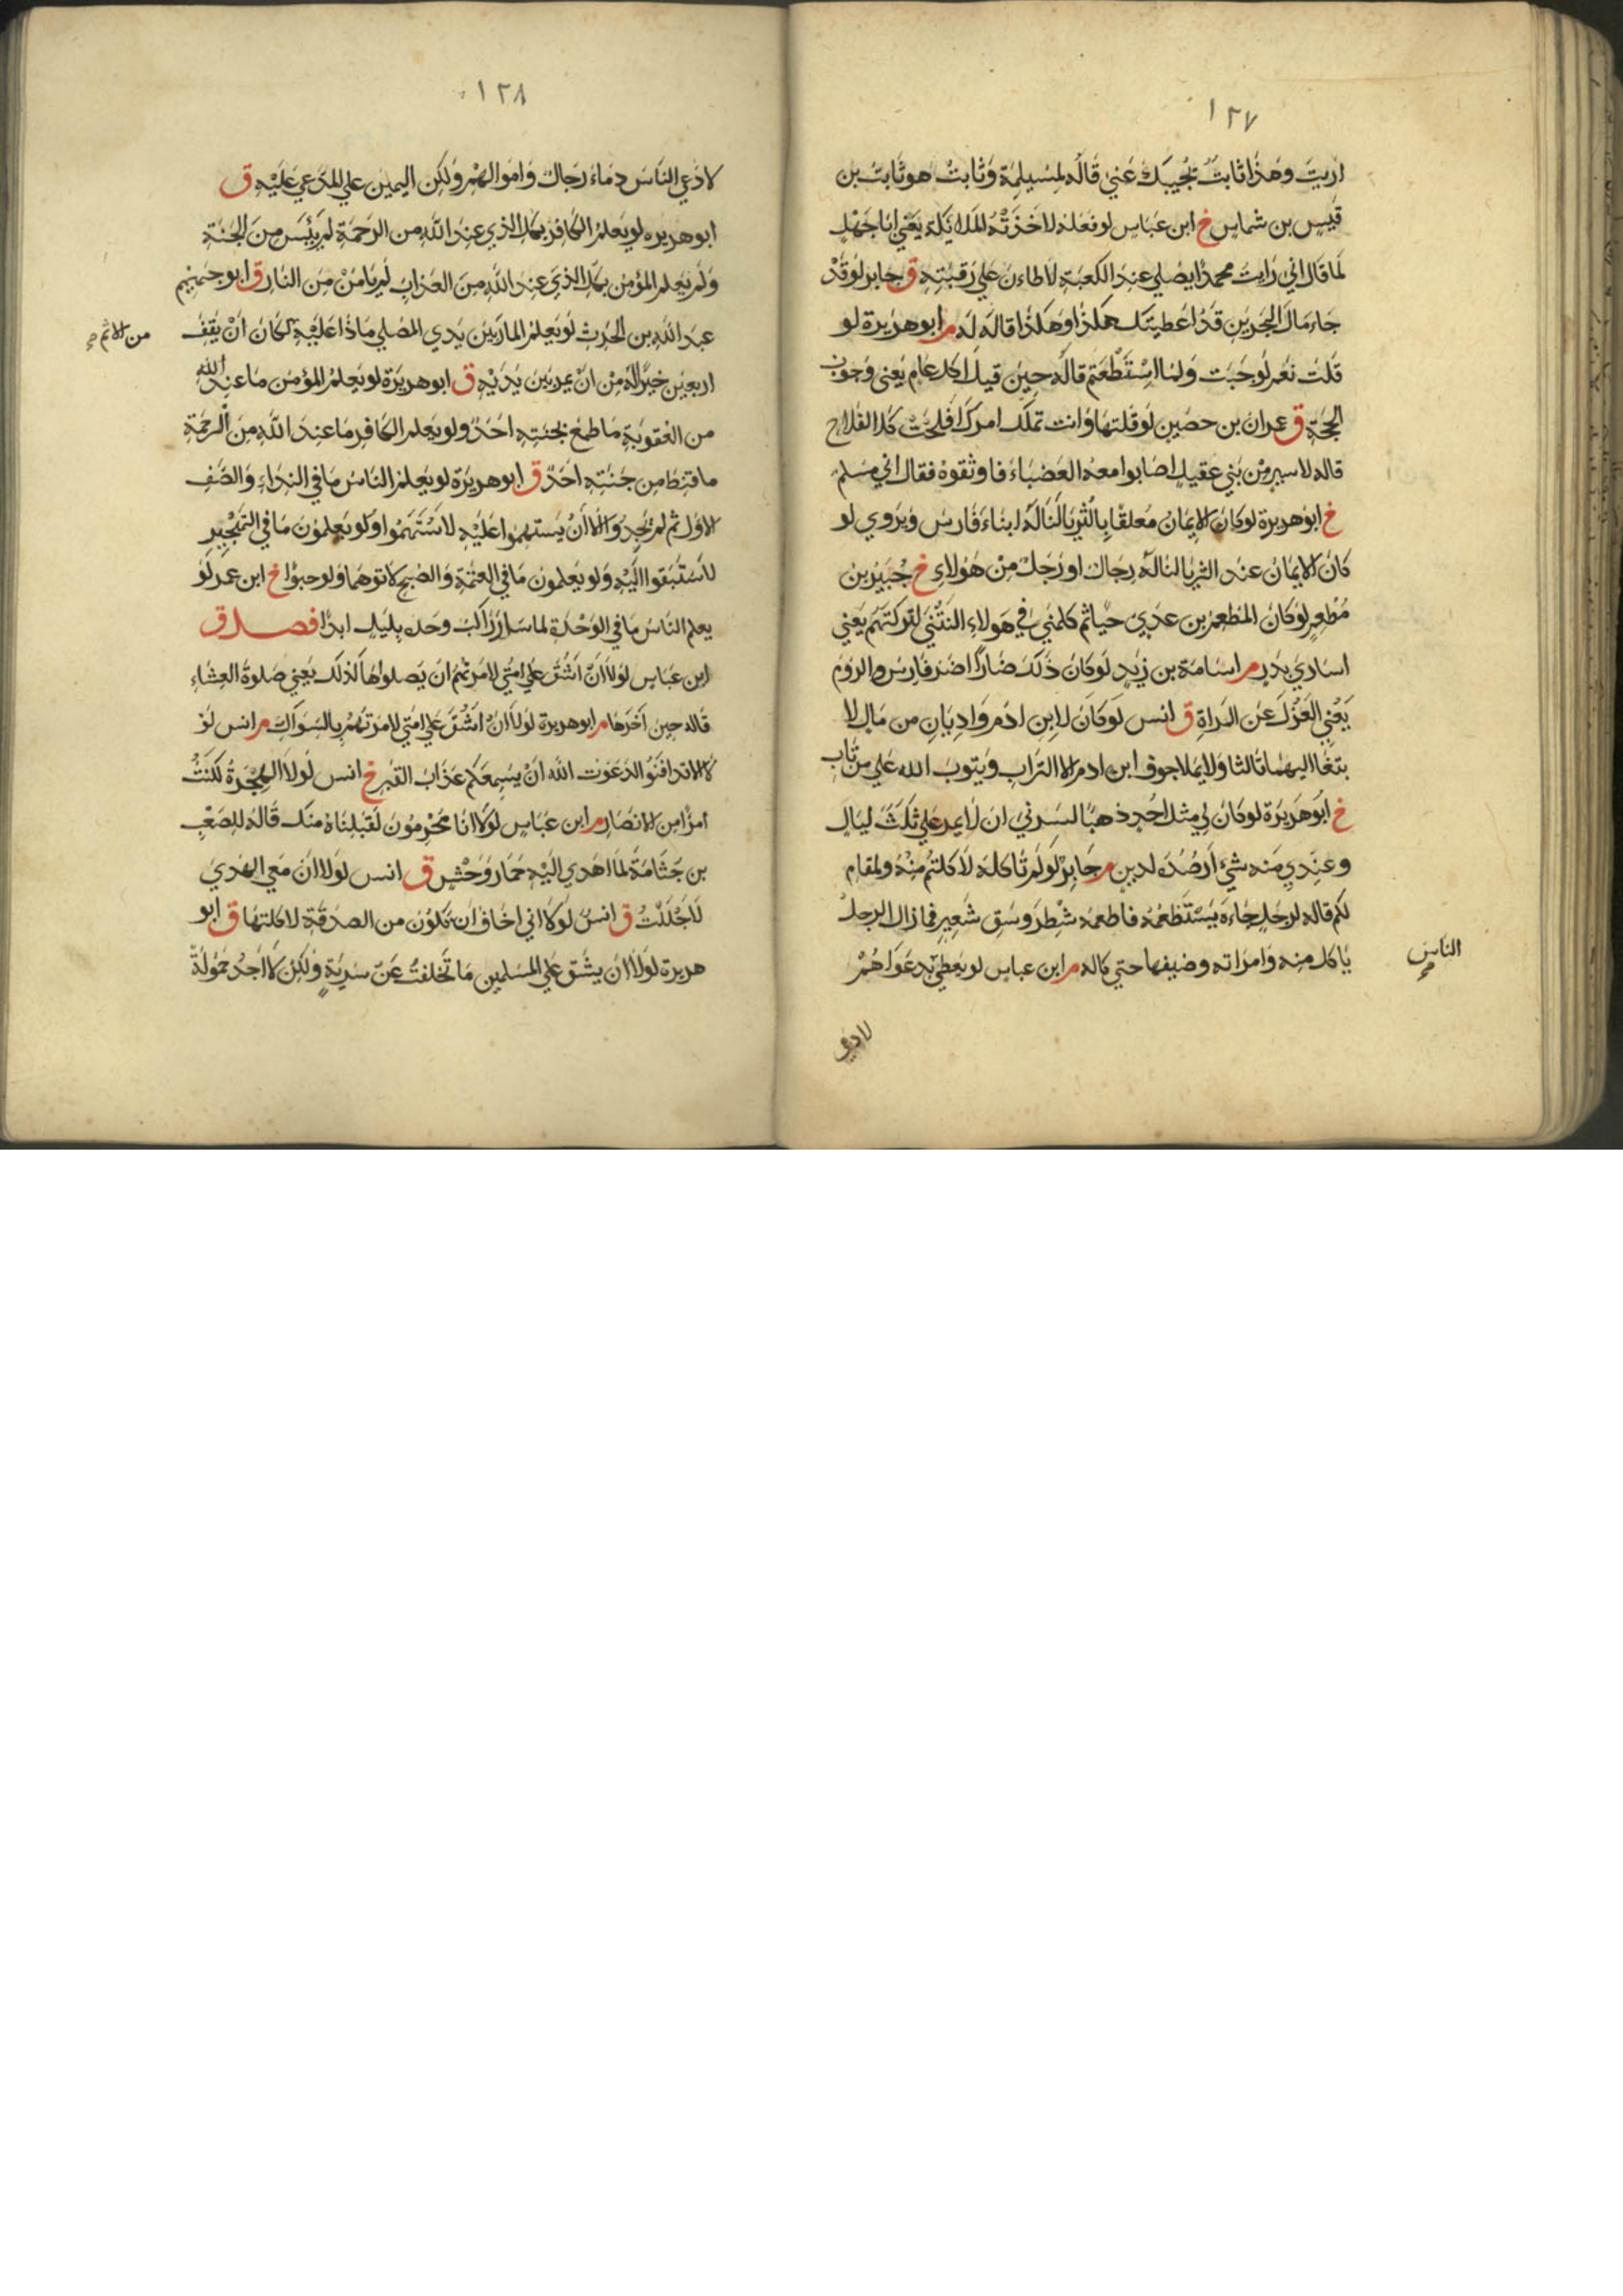 ١٢٧
اريت وهذا ثابت يجيبك عني قاله لمسيلمة وثابت هو ثابت بن
قيس بن شماس خ ابن عباس لو فعله لاخذته الملائكة يعني ابا جهل
لما قال اني رايت محمدا يصلي عند الكعبة لاطان علي رقبته ق جابر لو قد
جاء مال البحرين قد اعطيتك هكذا وهكذا قاله له م ابو هريرة لو
قلت نعم لوجبت ولما استطعتم قاله حين قيل اكل عام يعني وجوب
الحجة ق عمران بن حصين لو قلتها وانت تملك امرك افلحت كل الفلاح
قاله لاسير من بني عقيل اصابوا معه العضباء فاوثقوه فقال اني مسلم
خ ابو هريرة لو كان الايمان معلقا بالثريا لناله ابناء فارس ويروي لو
كان الايمان عند الثريا لناله رجال او رجل من هؤلاء خ جبير بن
مطعم لو كان المطعم بن عدي حيا ثم كلمني في هولاء النتني لتركتهم يعني
اساري بدر م اسامة بن زيد لو كان ذلك ضارا اضر فارس والروم
يعني العزل عن المراة ق انس لو كان لابن ادم واديان من مال لا
بتغا اليهما ثالثا ولا يملا جوف ابن ادم الا التراب ويتوب الله علي من تاب
خ ابو هريرة لو كان لي مثل احد ذهبا لسرني ان لا يمر علي ثلث ليال
وعندي منه شئ ارصده لدين م جابر لو لم تاكله لاكلتم منه ولقام
لكم قاله لرجل جاءه يستطعمه فاطعمه شطر وسق شعير فما زال الرجل
ياكل منه وامراته وضيفها حتي كاله م ابن عباس لو يعطي بدعواهم
الناس
لادعي
١٢٨
لادعي الناس دماء رجال واموالهم ولكن اليمين علي المدعي عليه ق
ابو هريره لو يعلم الكافر بكل الذي عند الله من الرحمة لم يئس من الجنة
ولم يعلم المؤمن بكل الذي عند الله من العذاب لم يامن من النار ق ابو جهيم
عبد الله بن الحرث لو يعلم المار بين يدي المصلي ماذا عليه لكان ان يقف
من الاثم
اربعين خيرا له من ان يمر بين يديه ق ابو هريرة لو يعلم المؤمن ما عند الله
من العقوبة ما طمع بجنته احد ولو يعلم الكافر ما عند الله من الرحمة
ما قنط من جنته احد ق ابو هريرة لو يعلم الناس ما في النداء والصف
الاول ثم لم يجدوا الا ان يستهموا عليه لاستهموا ولو يعلمون ما في التهجير
لاستبقوا اليه ولو يعلمون ما في العتمة والصبح لاتوهما ولو حبوا خ ابن عمر لو
يعلم الناس ما في الوحدة لما سار راكب وحده بليل ابدا فصل ق
ابن عباس لولا ان اشق علي امتي لامرتهم ان يصلوها كذلك يعني صلوة العشاء
قاله حين اخرها م ابو هريرة لولا ان اشق علي امتي لامرتهم بالسواك م انس لو
لا الا تدافنوا لدعوت الله ان يسمعكم عذاب القبر خ انس لولا الهجرة لكنت
امرأ من الانصار م ابن عباس لولا انا محرمون لقبلناه منك قاله للصعب
بن جثامة لما اهدي اليه حمار وحش ق انس لولا ان معي الهدي
لاحللت ق انس لولا اني اخاف ان تكون من الصدقة لاكلتها ق ابو
هريرة لولا ان يشق علي المسلمين ما تخلفت عن سرية ولكن لا اجد حمولة